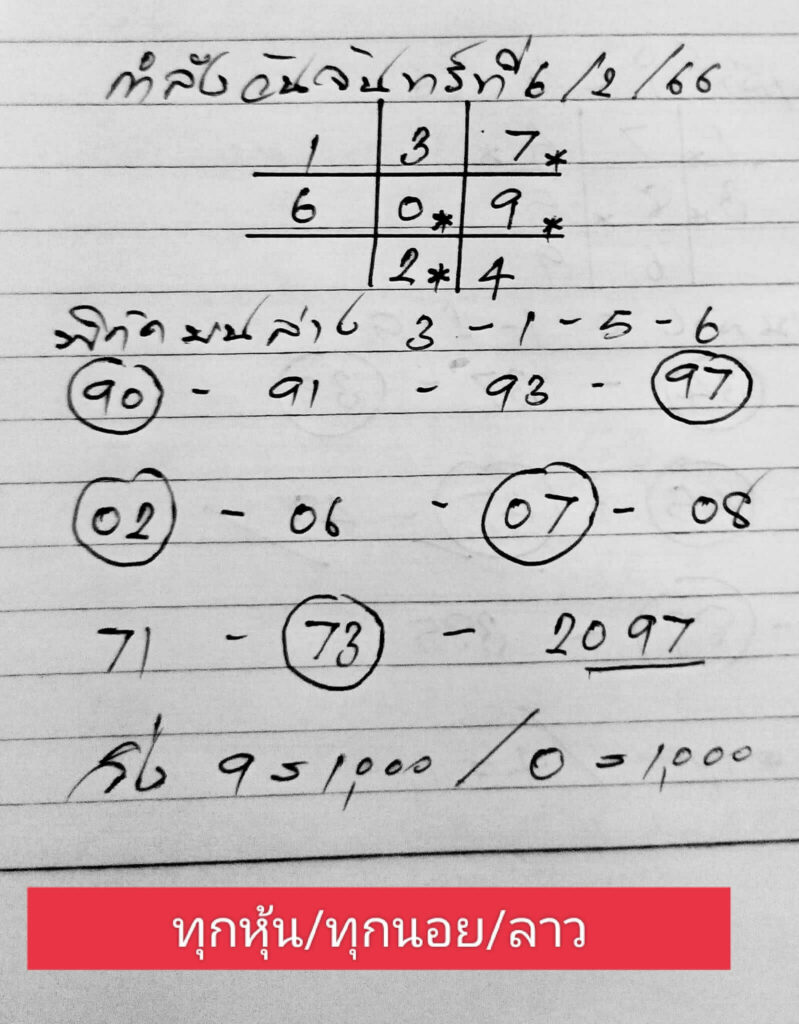 กำลังวันจันทร์ที่ 6/2/66
1 3 7*
6 0* 9*
2* 4
พิกัด บนล่าง 3-1-5-6
90 - 91 - 93 - 97
02 - 06 - 07 - 08
71 - 73 - 2097
วิ่ง 9=1,000 / 0=1,000
ทุกหุ้น/ทุกนอย/ลาว